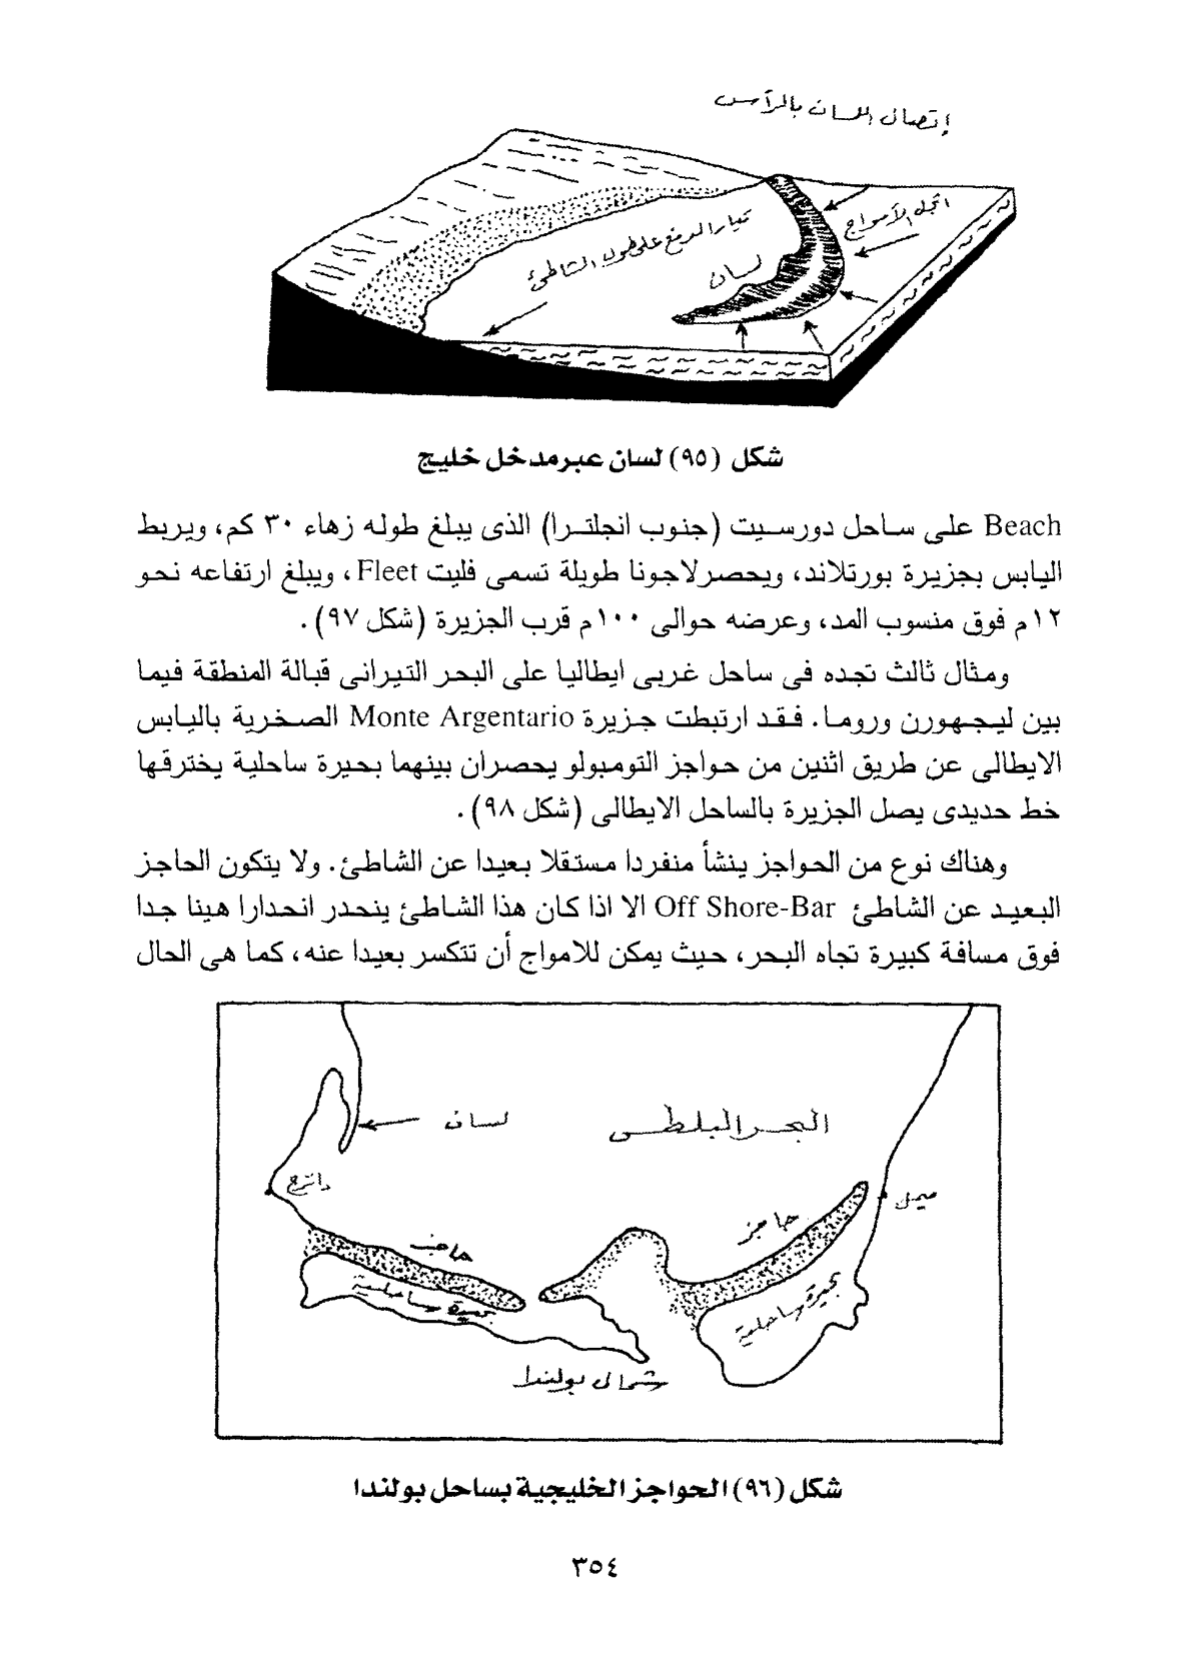 إتصال اللسان بالرأس
اتجاه الأمواج
تيار الدفع على طول الشاطئ
لسان
شكل (٩٥) لسان عبر مدخل خليج
Beach على ساحل دورسيت (جنوب انجلترا) الذى يبلغ طوله زهاء ٣٠ كم، ويربط
اليابس بجزيرة بورتلاند، ويحصر لاجونا طويلة تسمى فليت Fleet، ويبلغ ارتفاعه نحو
١٢م فوق منسوب المد، وعرضه حوالى ١٠٠م قرب الجزيرة (شكل ٩٧).
ومثال ثالث تجده فى ساحل غربى ايطاليا على البحر التيرانى قبالة المنطقة فيما
بين ليجهورن وروما. فقد ارتبطت جزيرة Monte Argentario الصخرية باليابس
الايطالى عن طريق اثنين من حواجز التومبولو يحصران بينهما بحيرة ساحلية يخترقها
خط حديدى يصل الجزيرة بالساحل الايطالى (شكل ٩٨).
وهناك نوع من الحواجز ينشأ منفردا مستقلا بعيدا عن الشاطئ. ولا يتكون الحاجز
البعيد عن الشاطئ Off Shore-Bar الا اذا كان هذا الشاطئ ينحدر انحدارا هينا جدا
فوق مسافة كبيرة تجاه البحر، حيث يمكن للامواج أن تتكسر بعيدا عنه، كما هى الحال
البحر البلطى
لسان
دانزج
ميمل
حاجز
حاجز
بحيرة ساحلية
بحيرة ساحلية
شمال بولندا
شكل (٩٦) الحواجز الخليجية بساحل بولندا
٣٥٤